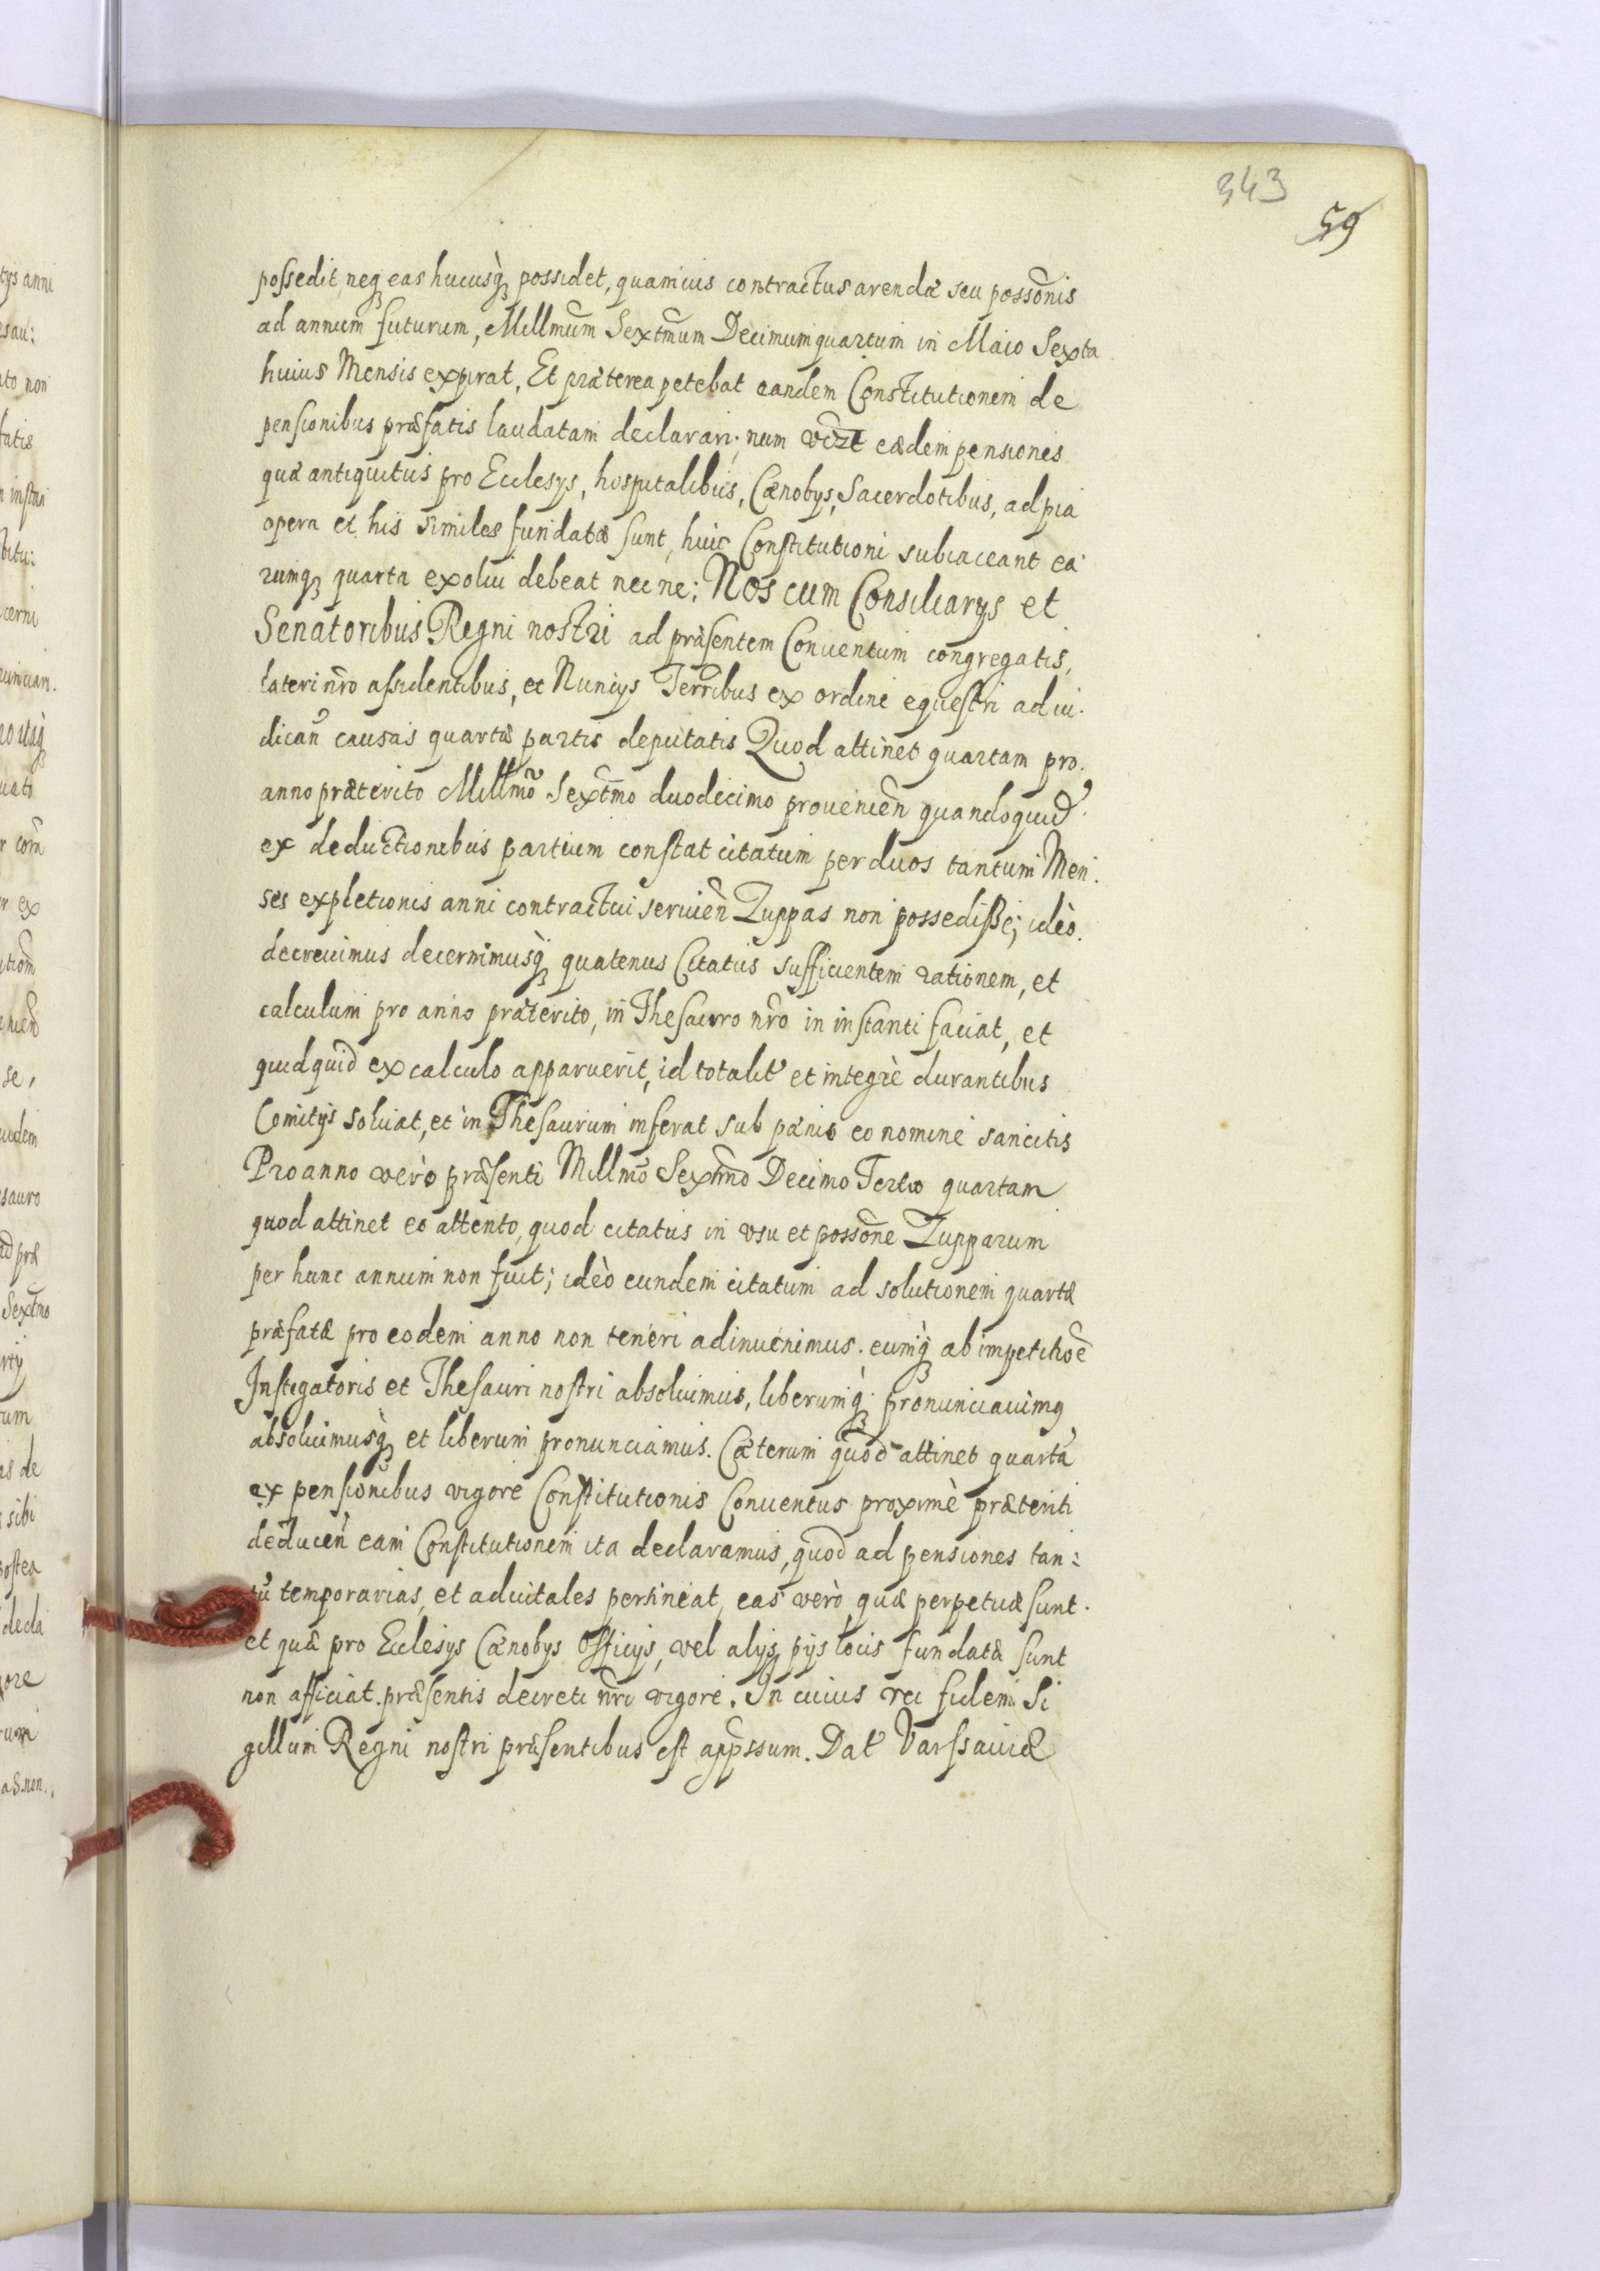 343
59
possedit, neq₃ eas hucusq̀₃ possidet, quamuis contractus arendæ seu possōnis
ad annum futurum, Millm̄um Sextm̄um Decimumquartum in Maio Sexta
huius Mensis expirat, Et præterea petebat eandem Constitutionem de
pensionibus præfatis laudatam declarari; num vc̄zt eædem pensiones
quæ antiquitus pro Ecclesÿs, hospitalibus, Cænobÿs, Sacerdotibus, ad pia
opera et his similes fundatæ sunt, huic Constitutioni subiaceant ea
rumq₃ quarta exolui debeat nec ne; Nos cum Consiliarÿs et
Senatoribus Regni nostri ad præsentem Conuentum congregatis,
lateri nr̄o assidentibus, et Nuncÿs Terrībus ex ordine equestri ad iu-
dican̄ causas quartæ partis deputatis Quod attinet quartam pro
anno præterito Millmō Sextm̄o duodecimo prouenien̄ quandoquid̉
ex deductionibus partium constat citatum per duos tantum Men-
ses expletionis anni contractui seruien̄ Zuppas non possedisse; ideò
decreuimus decernimusq̀₃ quatenus Citatus sufficientem rationem, et
calculum pro anno præterito, in Thesauro nr̄o in instanti faciat, et
quidquid ex calculo apparuerit, id totalit̉ et integrè durantibus
Comitÿs soluat, et in Thesaurum inferat sub pænis eo nomine sancitis
Pro anno verò præsenti Millmō Sextm̄o Decimo Tertio quartam
quod attinet eo attento, quod citatus in vsu et possōne Zupparum
per hunc annum non fuit; ideò eundem citatum ad solutionem quartæ
præfatæ pro eodem anno non teneri adinuenimus. eumq̀₃ ab impetitiōe
Instigatoris et Thesauri nostri absoluimus, liberumq̀₃ pronunciauimꝰ
absoluimusq̀₃ et liberum pronunciamus. Cæterum quod attinet quartā
ex pensionibus vigore Constitutionis Conuentus proximè præteriti
deducen̄ eam Constitutionem ita declaramus, quod ad pensiones tan-
tū temporarias, et aduitales pertineat, eas verò quæ perpetuæ sunt
et quæ pro Ecclesÿs Cænobÿs Officÿs, vel alÿs pÿs locis fundatæ sunt
non afficiat præsentis decreti nr̄i vigore. In cuius rei fidem Si
gillum Regni nostri præsentibus est app̄ssum. Dat̉ Varssauiæ